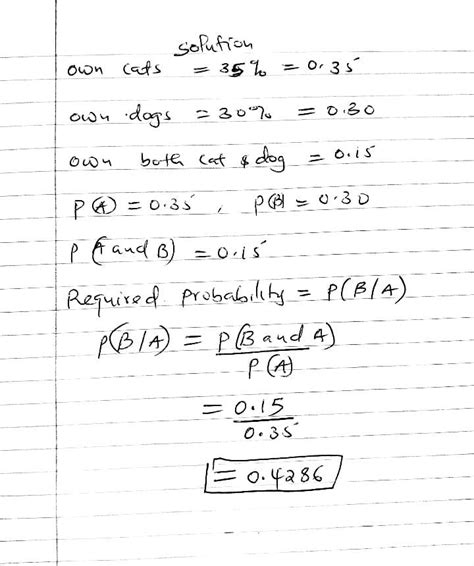 Solution
own cats = 35% = 0.35
own dogs = 30% = 0.30
own both cat & dog = 0.15
P(A) = 0.35 , P(B) = 0.30
P(A and B) = 0.15
Required probability = P(B/A)
P(B/A) = P(B and A)
P(A)
= 0.15
0.35
= 0.4286